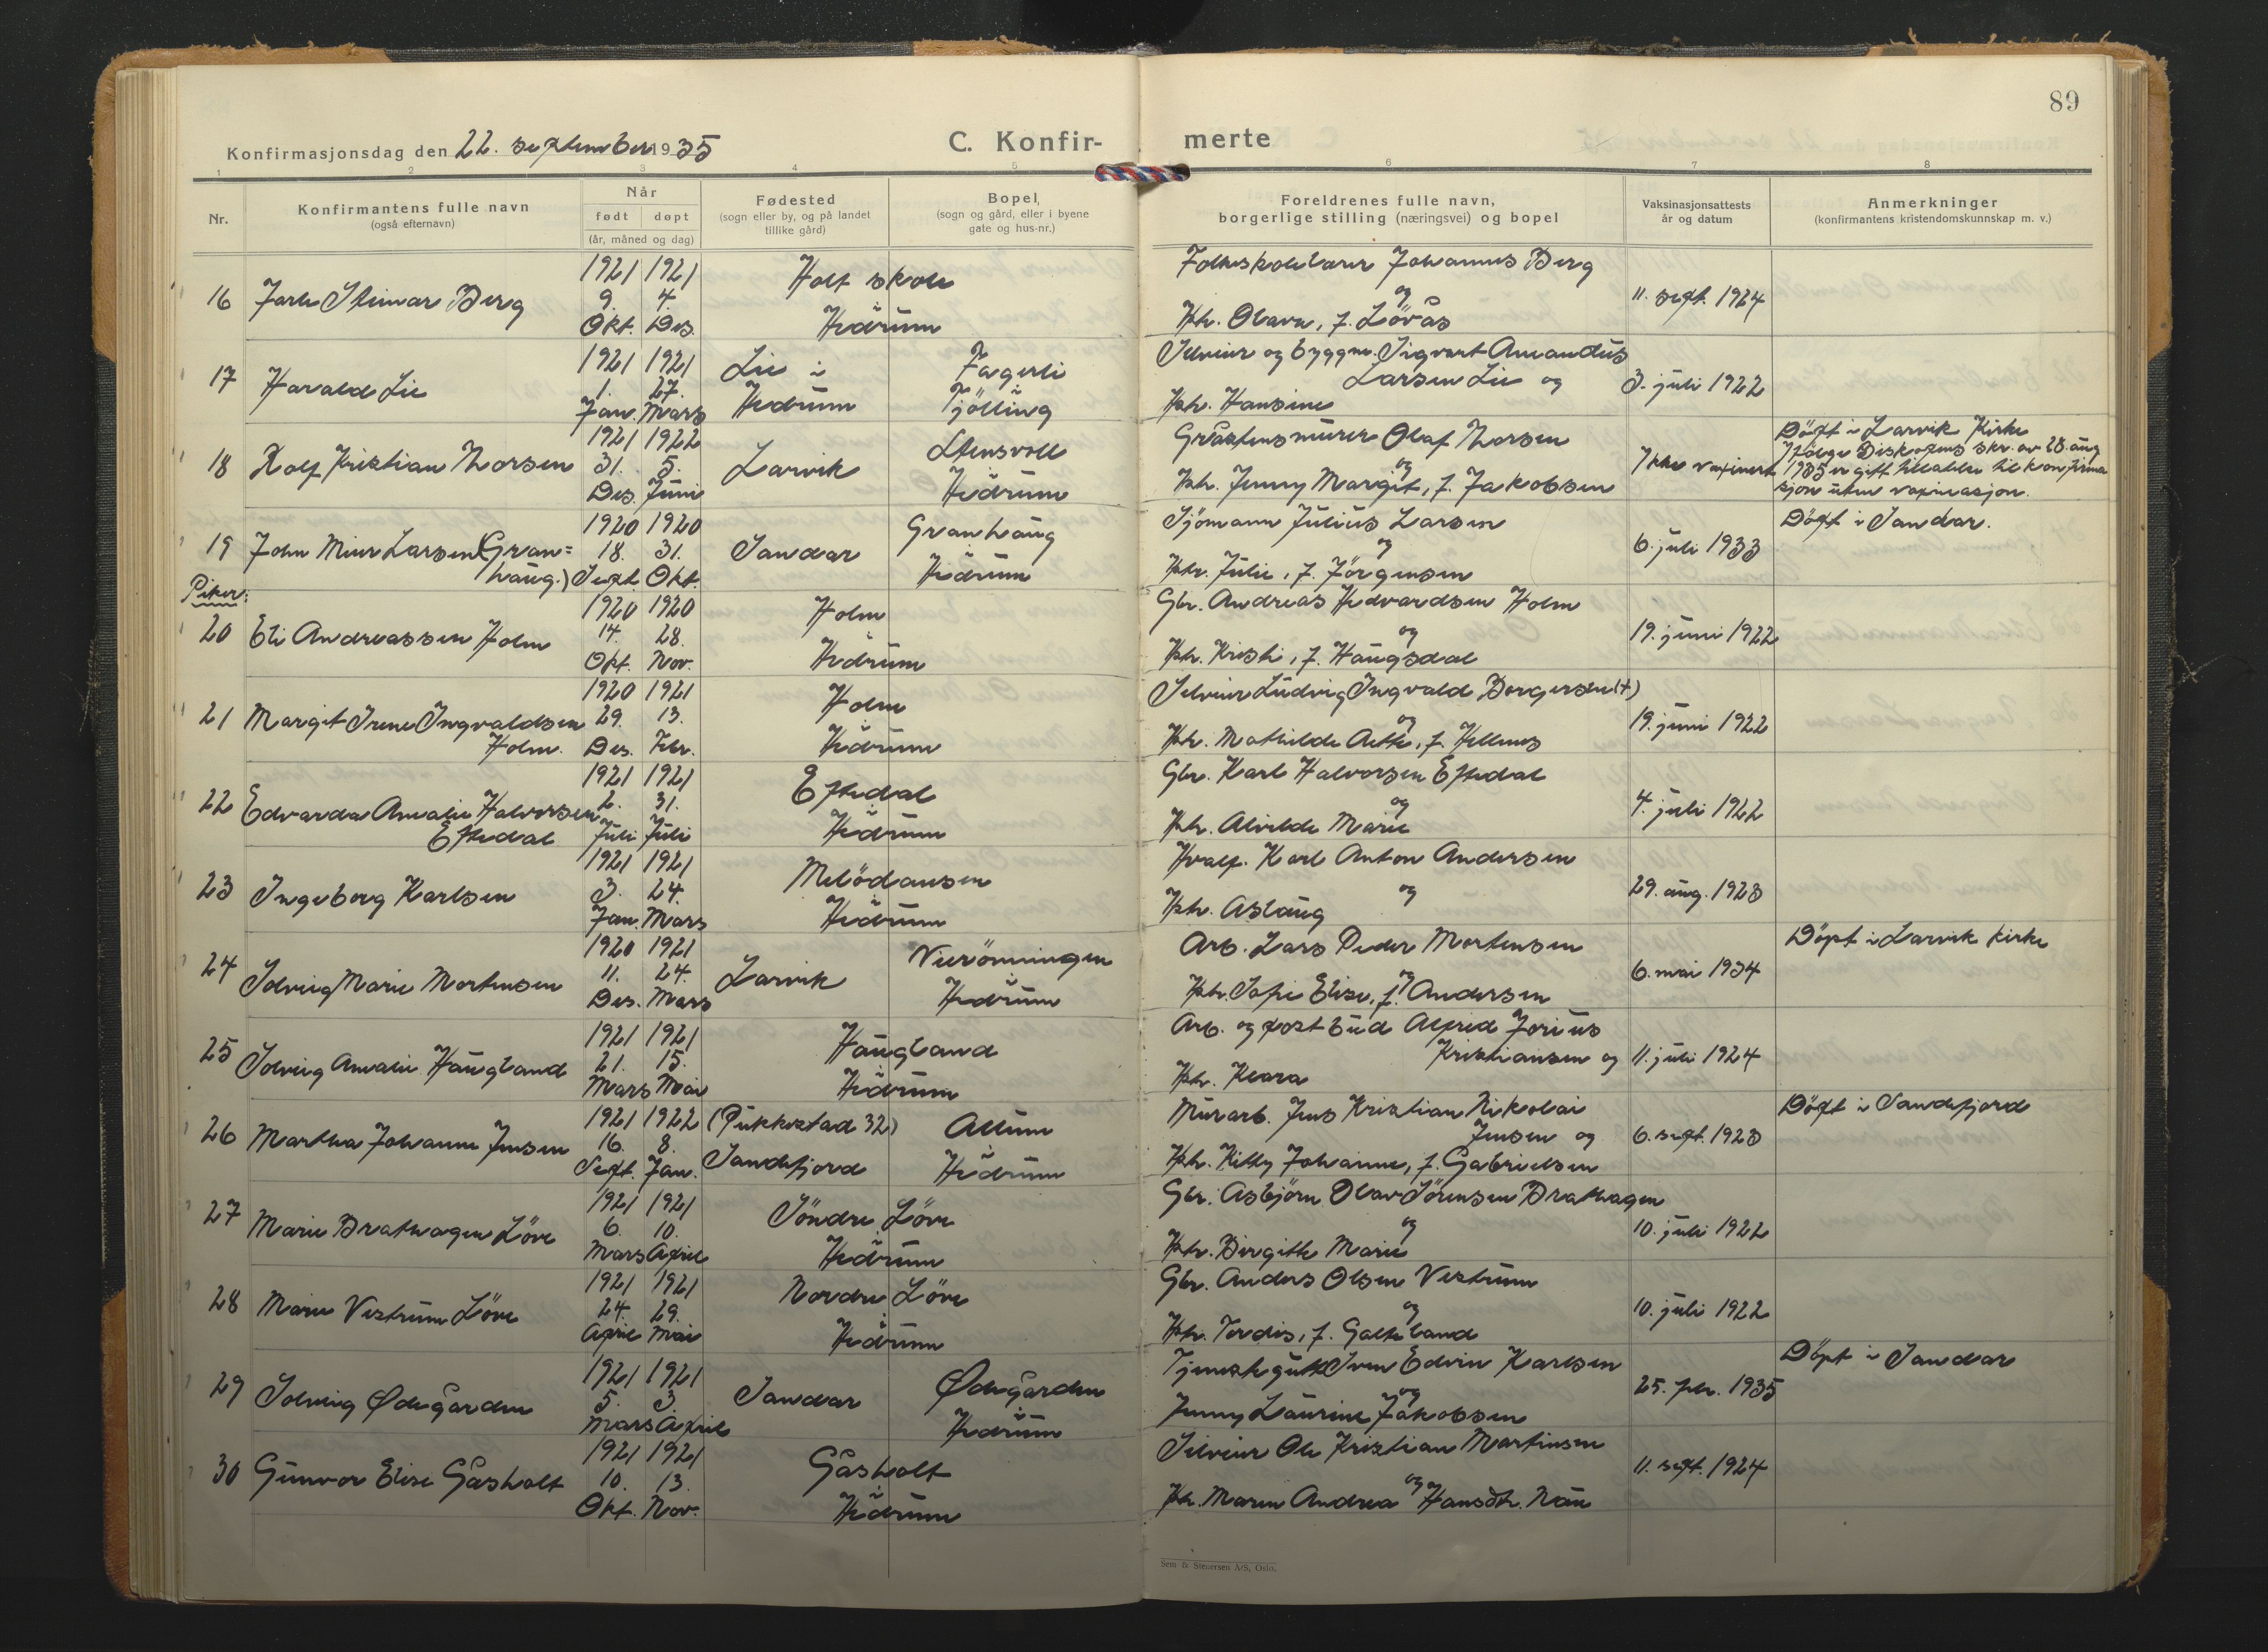 89
Konfirmasjonsdag den 22. september 1935
C. Konfir-
merte
1 2 3 4 5 6 7 8
Nr.
Konfirmantens fulle navn
(også efternavn)
Når
født døpt
(år, måned og dag)
Fødested
(sogn eller by, og på landet
tillike gård)
Bopel,
(sogn og gård, eller i byene
gate og hus-nr.)
Foreldrenes fulle navn,
borgerlige stilling (næringsvei) og bopel
Vaksinasjonsattests
år og datum
Anmerkninger
(konfirmantens kristendomskunnskap m. v.)
1921 1921 Holt skole Folkeskolelærer Johannes Berg
16 Jarle Steinar Berg 9. 4. og 11. sept. 1924
Okt. Des. Hedrum Htr. Olava, f. Lövås
1921 1921 Lie i Fagerli Selveier og byggm. Sigvart Amandus
17 Harald Lie 1. 27. Larsen Lie og 3. juli 1922
Jan. Mars Hedrum Tjölling Htr. Hansine
1921 1922 Stensvoll Gråstensmurer Olaf Thorsen Döpt i Larvik Kirke
18 Rolf Kristian Thorsen 31. 5. Larvik og Ikke vaxinert Ifölge Biskopens skr. av 28. aug
Des. Juni Hedrum Htr. Jenny Margit, f. Jakobsen 1935 er gitt tillatelse til konfirma
sjon uten vaxinasjon.
1920 1920 Granhaug Sjömann Julius Larsen Döpt i Sandar.
19 John Miur Larsen (Gran= 18. 31. Sandar og 6. juli 1933
haug.) Sept. Okt. Hedrum Htr. Julie, f. Jörgensen
Piker:
1920 1920 Holm Gbr. Andreas Hedvardsen Holm
20 Eli Andreassen Holm 14. 28. og 19. juni 1922
Okt. Nov. Hedrum Htr. Kristi, f. Haugsdal
1920 1921 Holm Selveier Ludvig Ingvald Borgersen (+)
21 Margit Irene Ingvaldsen 29. 13. og 19. juni 1922
Holm. Des. Febr. Hedrum Htr. Mathilde Aette, f. Hellenes
1921 1921 Eftedal Gbr. Karl Halvorsen Eftedal
22 Edvarda Amalie Halvorsen 2. 31. og 4. juli 1922
Eftedal Juli Juli Hedrum Htr. Alvilde Marie
1921 1921 Melödansen Hvalf. Karl Anton Andersen
23 Ingeborg Karlsen 3. 24. og 29. aug. 1923
Jan. Mars Hedrum Htr. Aslaug
1920 1921 Vierönningen Arb. Lars Peder Mortensen Döpt i Larvik kirke
24 Solveig Marie Mortensen 11. 24. Larvik og 6. mai 1934
Des. Mars Hedrum Htr. Sofie Elise, f. Andersen
1921 1921 Haugland Arb. og postbud Alfred Jorius
25 Solveig Amalie Haugland 21. 15. Kristiansen og 11. juli 1924
Mars Mai Hedrum Htr. Klara
1921 1922 (Pukkestad 32) Allum Murarb. Jens Kristian Nikolai Döpt i Sandefjord
26 Martha Johanne Jensen 16. 8. Jensen og 6. sept. 1923
Sept. Jan. Sandefjord Hedrum Htr. Kitty Johanne, f. Gabrielsen
1921 1921 Söndre Löve Gbr. Asbjörn Olav Sörensen Brathagen
27 Marie Brathagen Löve 6. 10. og 10. juli 1922
Mars April Hedrum Htr. Birgithe Marie
1921 1921 Nordre Löve Gbr. Anders Olsen Vestrum
28 Marie Vestrum Löve 24. 29. og 10. juli 1922
April Mai Hedrum Htr. Tordis, f. Galteland
1921 1921 Ødegården Tjenestegutt Sven Edvin Karlsen Döpt i Sandar
29 Solveig Ødegården 5. 3. Sandar og 25. febr. 1935
Mars April Hedrum Jenny Laurine Jakobsen
1921 1921 Gåsholt Selveier Ole Kristian Martinsen
30 Gunvor Elise Gåsholt 10. 13. og 11. sept. 1924
Okt. Nov. Hedrum Htr. Maren Andrea Hansdtr. Nau
Sem & Stenersen A/S, Oslo.